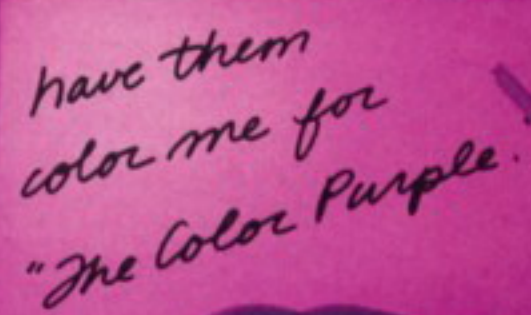 have them
color me for
"The Color Purple.